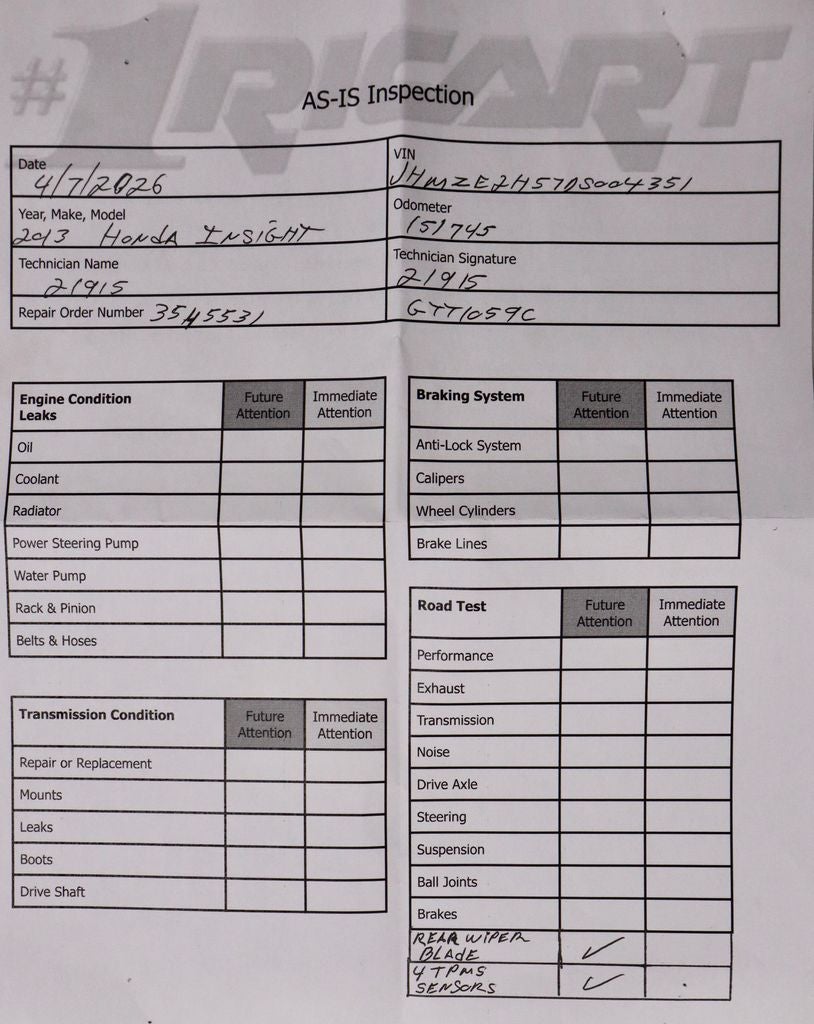 #1 RICART
AS-IS Inspection
Date 4/7/2026
VIN JHMZE2H57DS004351
Year, Make, Model 2013 HONDA INSIGHT
Odometer 151745
Technician Name 21915
Technician Signature 21915
Repair Order Number 3545531
GTT1059C
Engine Condition Leaks Future Attention Immediate Attention
Oil
Coolant
Radiator
Power Steering Pump
Water Pump
Rack & Pinion
Belts & Hoses
Transmission Condition Future Attention Immediate Attention
Repair or Replacement
Mounts
Leaks
Boots
Drive Shaft
Braking System Future Attention Immediate Attention
Anti-Lock System
Calipers
Wheel Cylinders
Brake Lines
Road Test Future Attention Immediate Attention
Performance
Exhaust
Transmission
Noise
Drive Axle
Steering
Suspension
Ball Joints
Brakes
REAR WIPER BLADE ✓
4 TPMS SENSORS ✓